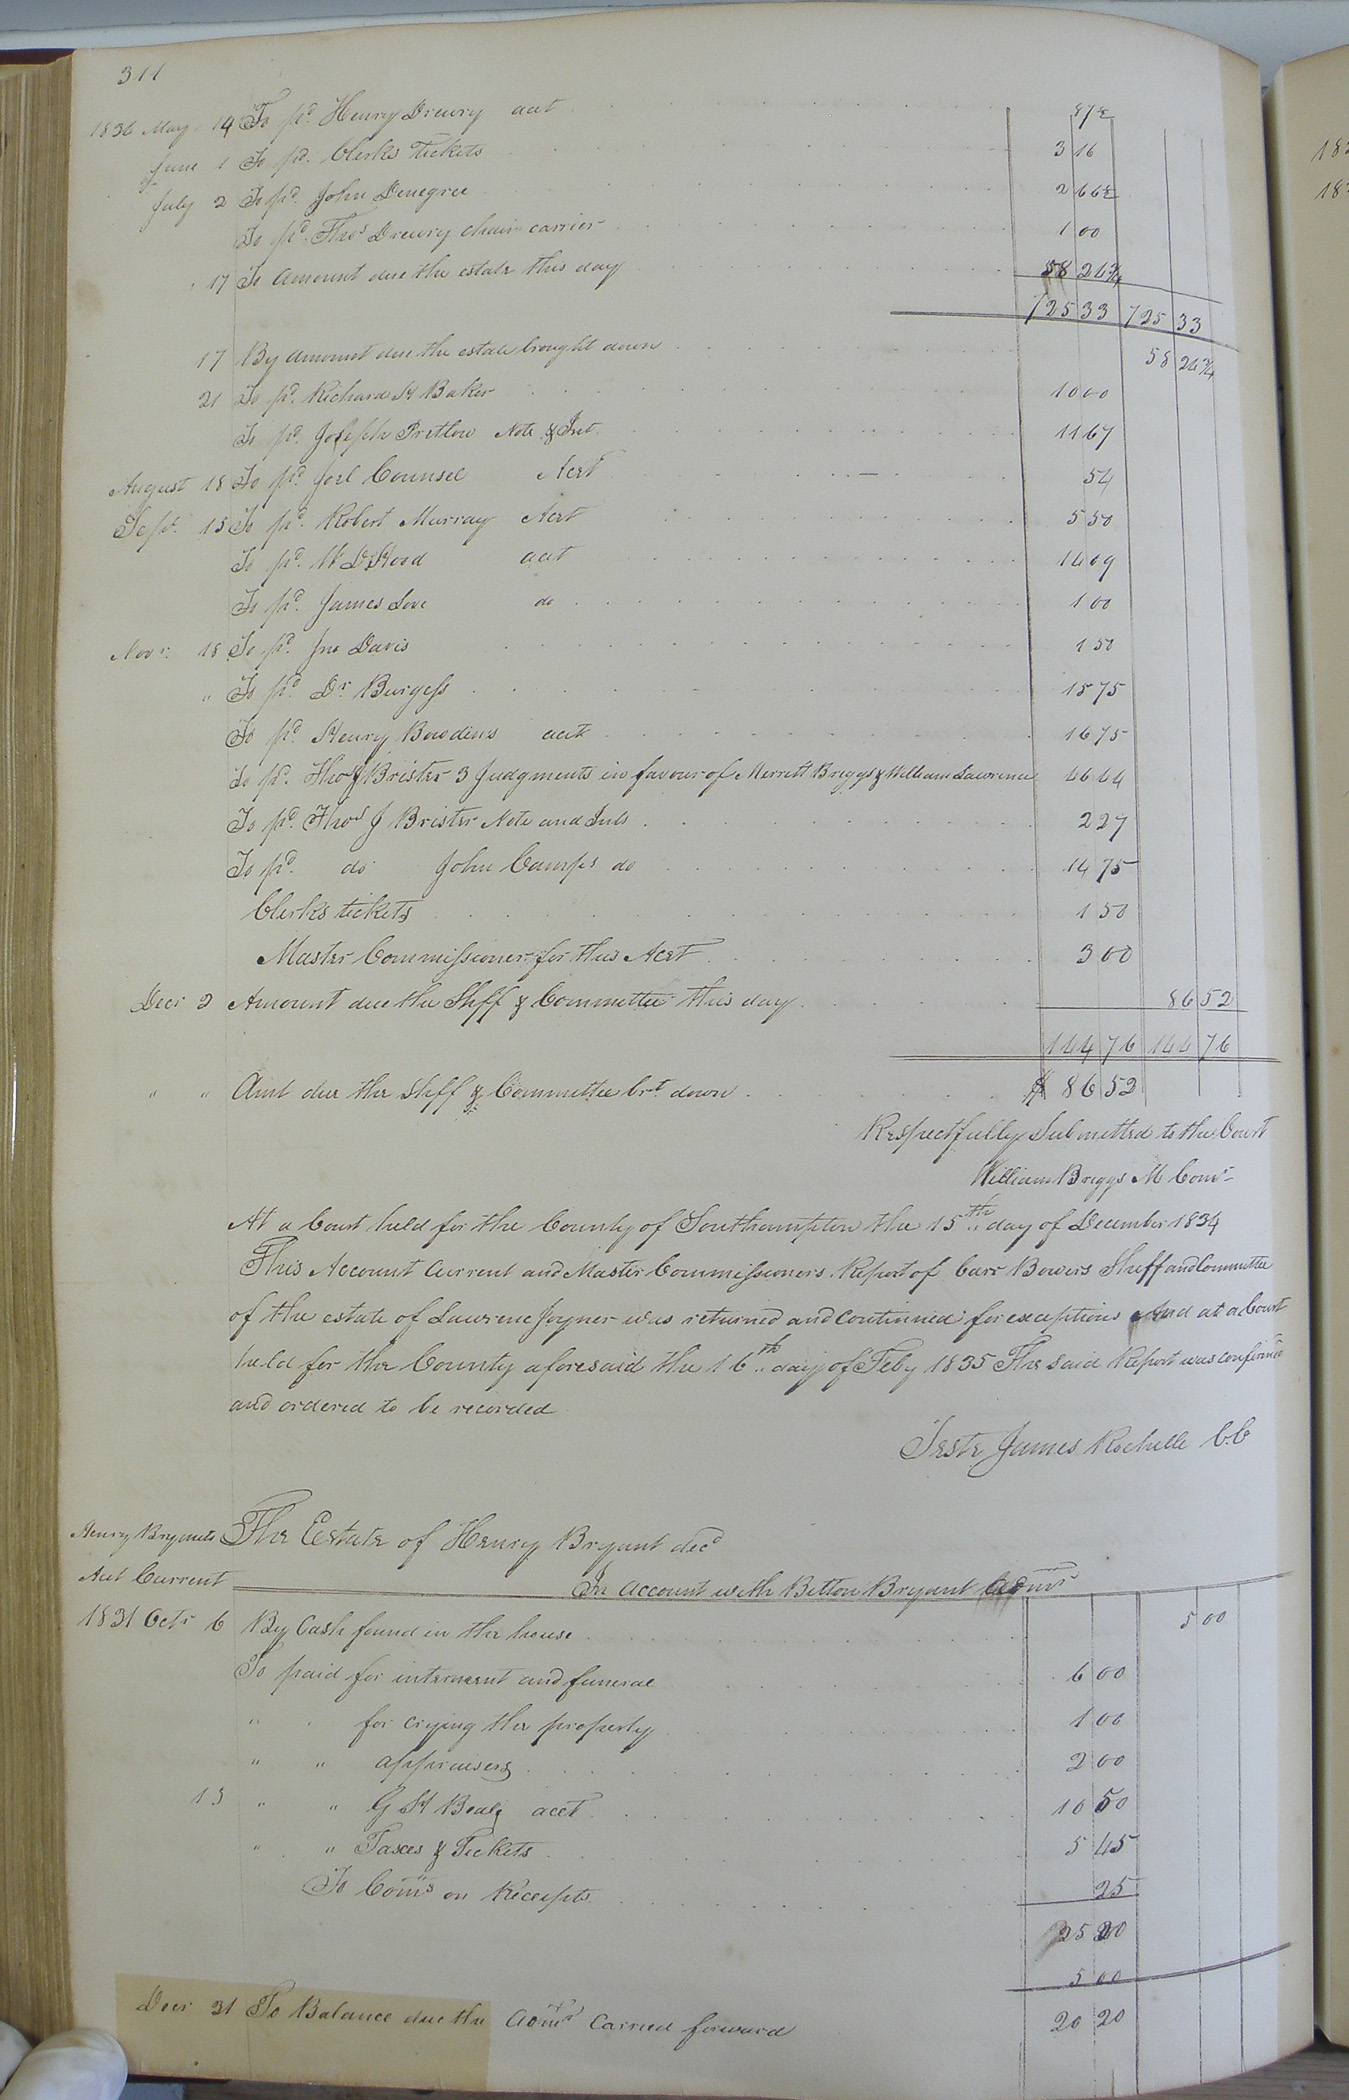 311
1836 May 14 To pd. Henry Drewry acct 87½
June 1 To pd. Clerks Tickets 3 16
July 2 To pd. John Denegree 2 66½
To pd. Thos Drewry chain carrier 1 00
17 To Amount due the estate this day 58 24¾
725 33 725 33
17 By Amount due the estate brought down 58 24¾
21 To pd. Richard H Baker 10 00
To pd. Joseph Pretlow Note & Int. 11 67
August 18 To pd. Joel Counsel Acct 54
Sept. 15 To pd. Robert Murray Acct 5 50
To pd. W D Hood acct 14 09
To pd. James Love do 1 00
Novr. 18 To pd. Jno Davis 1 50
" To pd. Dr. Burgess 15 75
To pd. Henry Bowdens acct 16 75
To pd. Thos J Brister 3 Judgments in favour of Merrett Briggs & William Lawrence 44 64
To pd. Thos J Brister Note and Ints 2 27
To pd. do John Camps do 14 75
Clerks tickets 1 50
Master Commissioner for this Acct 3 00
Decr 2 Amount due the Shff & Committee this day 86 52
144 76 144 76
" " Amt due the Shff & Committee brt. down $ 86 52
Respectfully Submitted to the Court
William Briggs M Comr
At a Court held for the County of Southampton the 15th day of December 1834
This Account Current and Master Commissioners Report of Carr Bowers Sheff and Committee
of the estate of Lawrence Joyner was returned and Continued for exceptions And at a Court
held for the County aforesaid the 16th day of Feby 1835 The said Report was confirmed
and ordered to be recorded
Teste James Rochelle C.C
Henry Bryants The Estate of Henry Bryant decd
Acct Current In account with Betton Bryant Admr
1831 Octr 6 By Cash found in the house 5 00
To paid for interment and funeral 6 00
" " for crying the property 1 00
" " appraisers 2 00
13 " " G H Bealy acct 10 50
" " Taxes & Tickets 5 45
To Coms on Receipts 25
25 20
5 00
Decr 31 To Balance due the Admr Carried forward 20 20